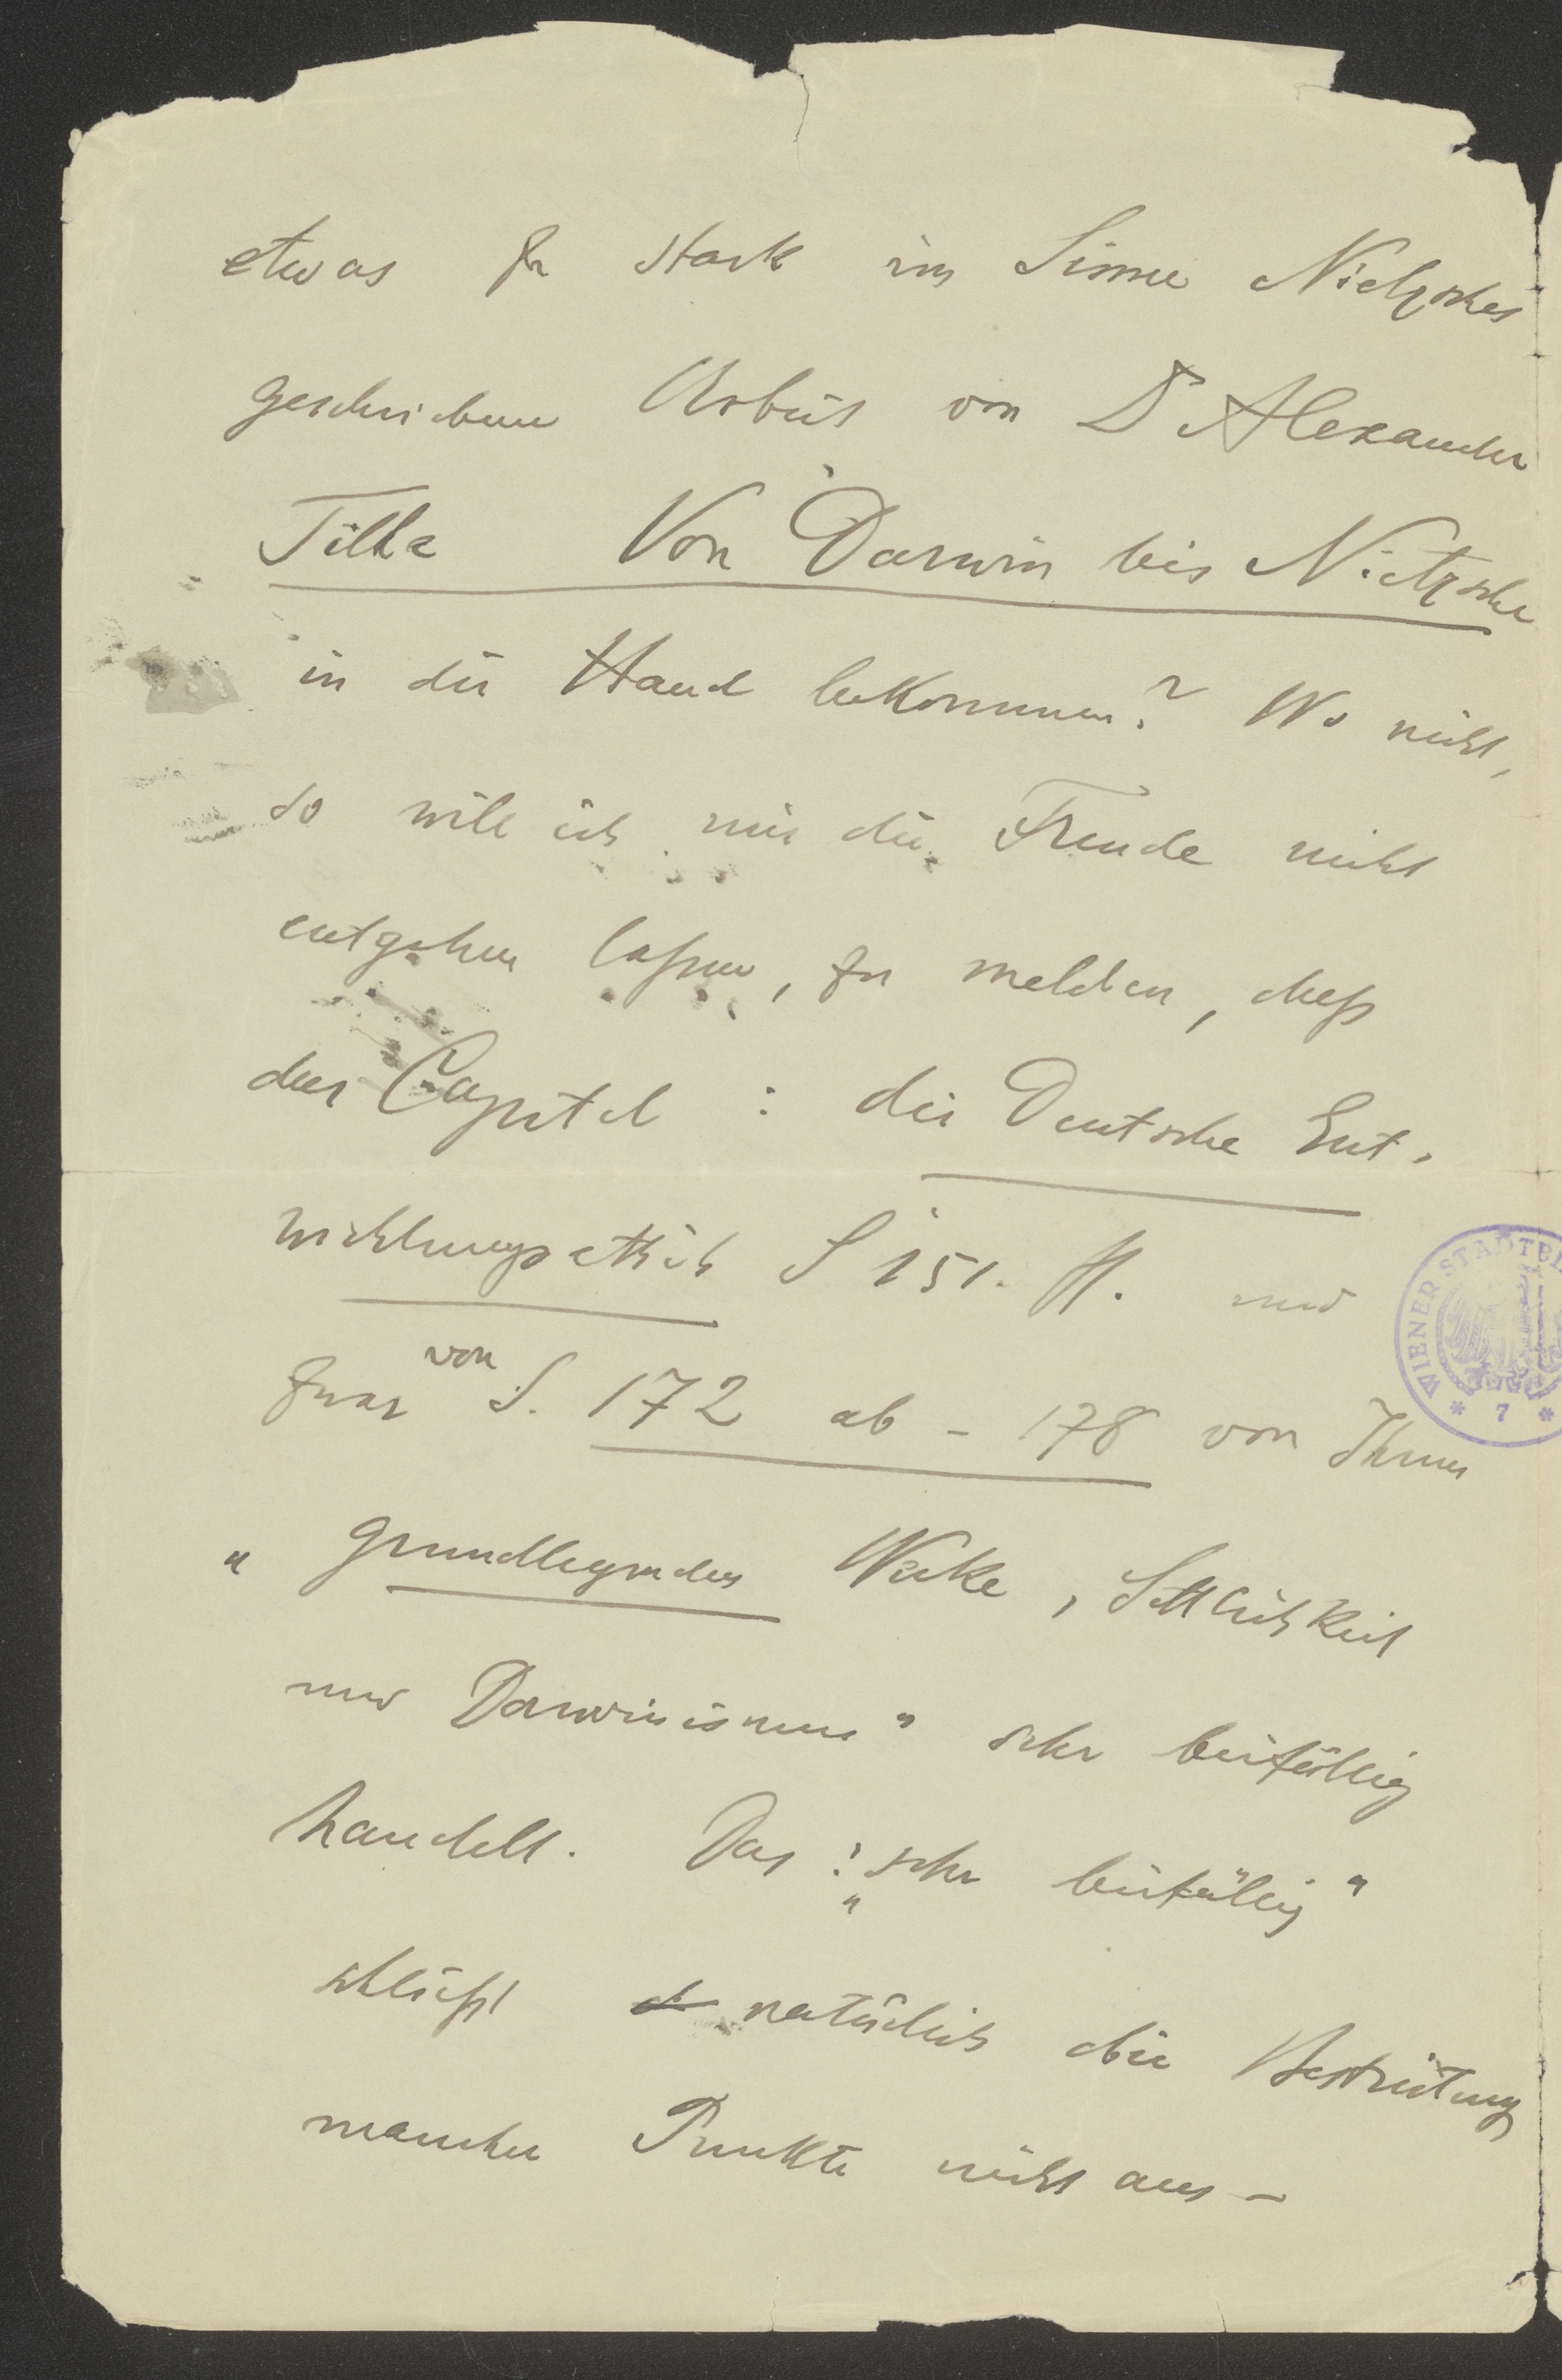 etwas zu stark im Sinne Nietzsches
geschriebene Arbeit von Dr Alexander
Tille Von Darwin bis Nietzsche
in die Hand bekommen? Wo nicht,
so will ich mir die Freude nicht
entgehen laßen, zu melden, daß
das Capitel : die Deutsche Ent-
wicklungsethik S 151. ff. und
zwar von S. 172 ab - 178 von Ihrem
„grundlegenden Werke, Sittlichkeit
und Darwinismus" sehr beifällig
handelt. Das : „sehr beifällig"
schließt natürlich die Bestreitung
mancher Punkte nicht aus –
WIENER STADTBI
* 7 *